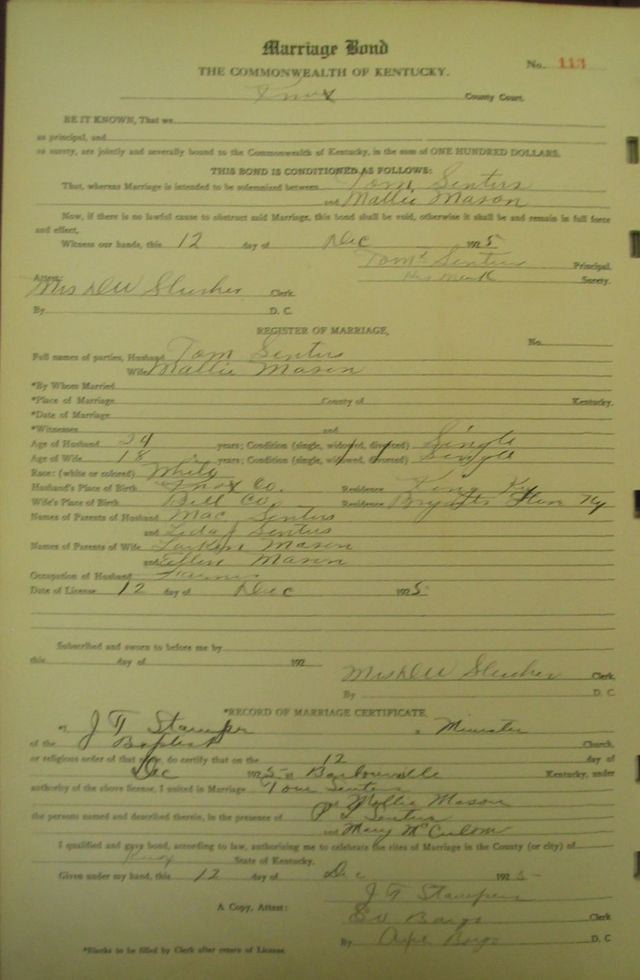 Marriage Bond
No. 113
THE COMMONWEALTH OF KENTUCKY.
Knox County Court.
BE IT KNOWN, That we
as principal, and
as surety, are jointly and severally bound to the Commonwealth of Kentucky, in the sum of ONE HUNDRED DOLLARS.
THIS BOND IS CONDITIONED AS FOLLOWS:
That, whereas Marriage is intended to be solemnized between Tom Senters
and Mallie Mason
Now, if there is no lawful cause to obstruct said Marriage, this bond shall be void, otherwise it shall be and remain in full force
and effect.
Witness our hands, this 12 day of Dec 1925
Tom Senters Principal.
His Mark Surety.
Attest:
Mrs D W Slusher Clerk
By D. C.
REGISTER OF MARRIAGE,
No.
Full names of parties, Husband Tom Senters
Wife Mallie Mason
*By Whom Married
*Place of Marriage County of Kentucky.
*Date of Marriage
*Witnesses and
Age of Husband 24 years; Condition (single, widowed, divorced) Single
Age of Wife 18 years; Condition (single, widowed, divorced) Single
Race: (white or colored) White
Husband's Place of Birth Knox Co. Residence Ky
Wife's Place of Birth Bell Co. Residence Ky
Names of Parents of Husband Mac Senters
and Senters
Names of Parents of Wife Larken Mason
and Ellen Mason
Occupation of Husband Farmer
Date of License 12 day of Dec 1925
Subscribed and sworn to before me by
this day of 192
Mrs D W Slusher Clerk.
By D. C.
*RECORD OF MARRIAGE CERTIFICATE.
I, J T Stamper a Minister
of the Baptist Church,
or religious order of that name, do certify that on the 12 day of
Dec 1925 at Barbourville Kentucky, under
authority of the above license, I united in Marriage Tom Senters
and Mallie Mason
the persons named and described therein, in the presence of Senters
and Mary McCulom
I qualified and gave bond, according to law, authorizing me to celebrate the rites of Marriage in the County (or city) of
Knox State of Kentucky.
Given under my hand, this 12 day of Dec 1925
J T Stamper
A Copy, Attest: Bargo Clerk
By Bargo D. C
*Blanks to be filled by Clerk after return of License.